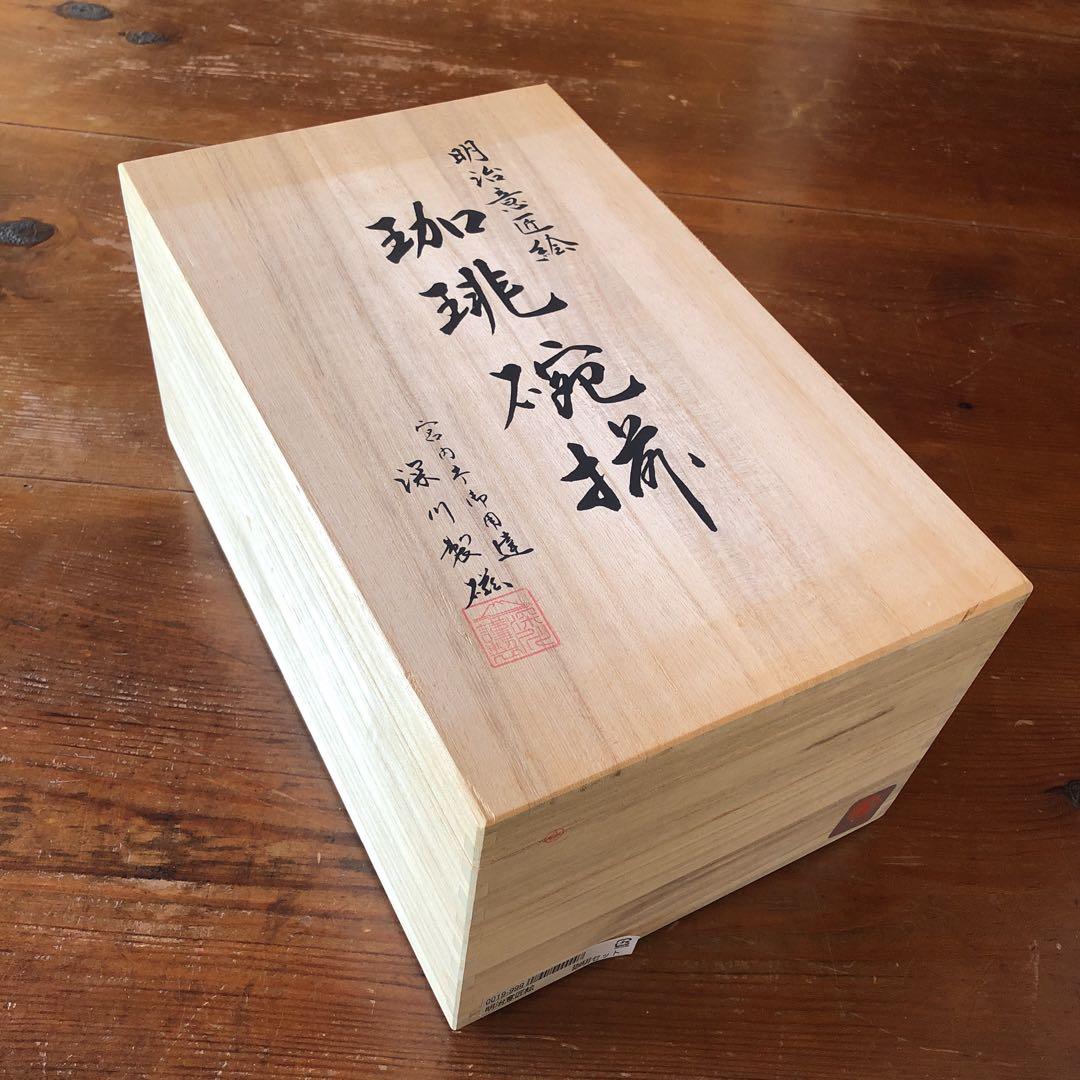 明治意匠絵
珈琲碗揃
宮内庁御用達
深川製磁
0019-999
明治意匠絵
珈琲セット